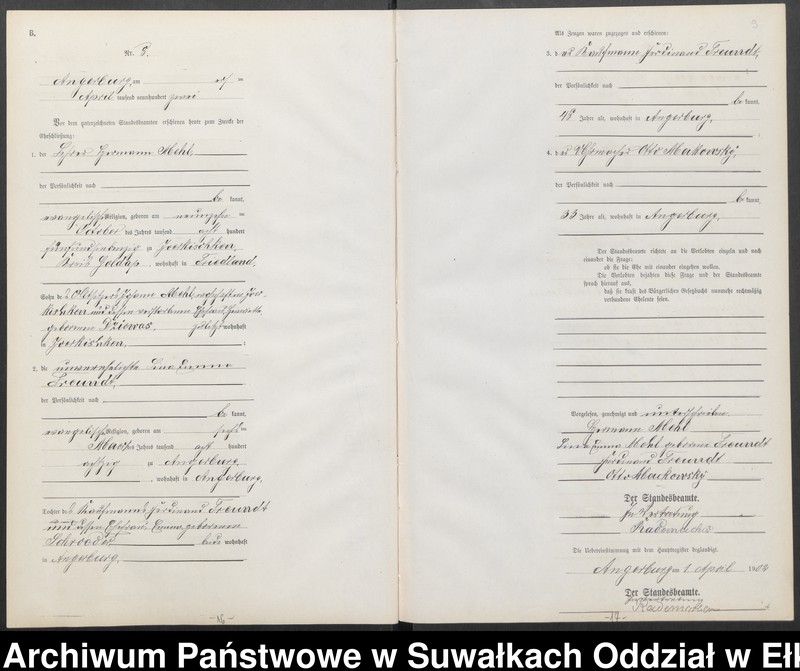 B.
Nr. 5.
Angerburg, am
April tausend neunhundert zwei
Vor dem unterzeichneten Standesbeamten erschienen heute zum Zwecke der
Eheschließung:
1. der Lehrer Hermann Mehl,
der Persönlichkeit nach
be kannt,
evangelischer Religion, geboren am neunzehn ten
October des Jahres tausend acht hundert
fünfundsiebenzig zu
Kreis Goldap, wohnhaft in Friedland,
Sohn des Mehl
geborenen Dziewas, zuletzt wohnhaft
in ;
2. die unverehelichte Lina Emma
Freundt,
der Persönlichkeit nach
be kannt,
evangelischer Religion, geboren am
März des Jahres tausend acht hundert
achtzig zu Angerburg,
, wohnhaft in Angerburg,
Tochter des Kaufmanns Ferdinand Freundt
und dessen Ehefrau Emma geborenen
Schroeder beide wohnhaft
in Angerburg.
-16-
9
Als Zeugen waren zugezogen und erschienen:
3. der Kaufmann Ferdinand Freundt,
der Persönlichkeit nach
be kannt,
Jahre alt, wohnhaft in Angerburg,
;
4. der Uhrmacher Otto Makowsky,
der Persönlichkeit nach
be kannt,
33 Jahre alt, wohnhaft in Angerburg.
Der Standesbeamte richtete an die Verlobten einzeln und nach
einander die Frage:
ob sie die Ehe mit einander eingehen wollen.
Die Verlobten bejahten diese Frage und der Standesbeamte
sprach hierauf aus,
daß sie kraft des Bürgerlichen Gesetzbuchs nunmehr rechtmäßig
verbundene Eheleute seien.
Vorgelesen, genehmigt und unterschrieben
Hermann Mehl
Lina Emma Mehl geborene Freundt
Ferdinand Freundt
Otto Makowsky
Der Standesbeamte.
In Vertretung
Rademacher
Die Uebereinstimmung mit dem Hauptregister beglaubigt.
Angerburg am 1 April 1902
Der Standesbeamte.
In Vertretung
Rademacher
-17-
Archiwum Państwowe w Suwałkach Oddział w Eł